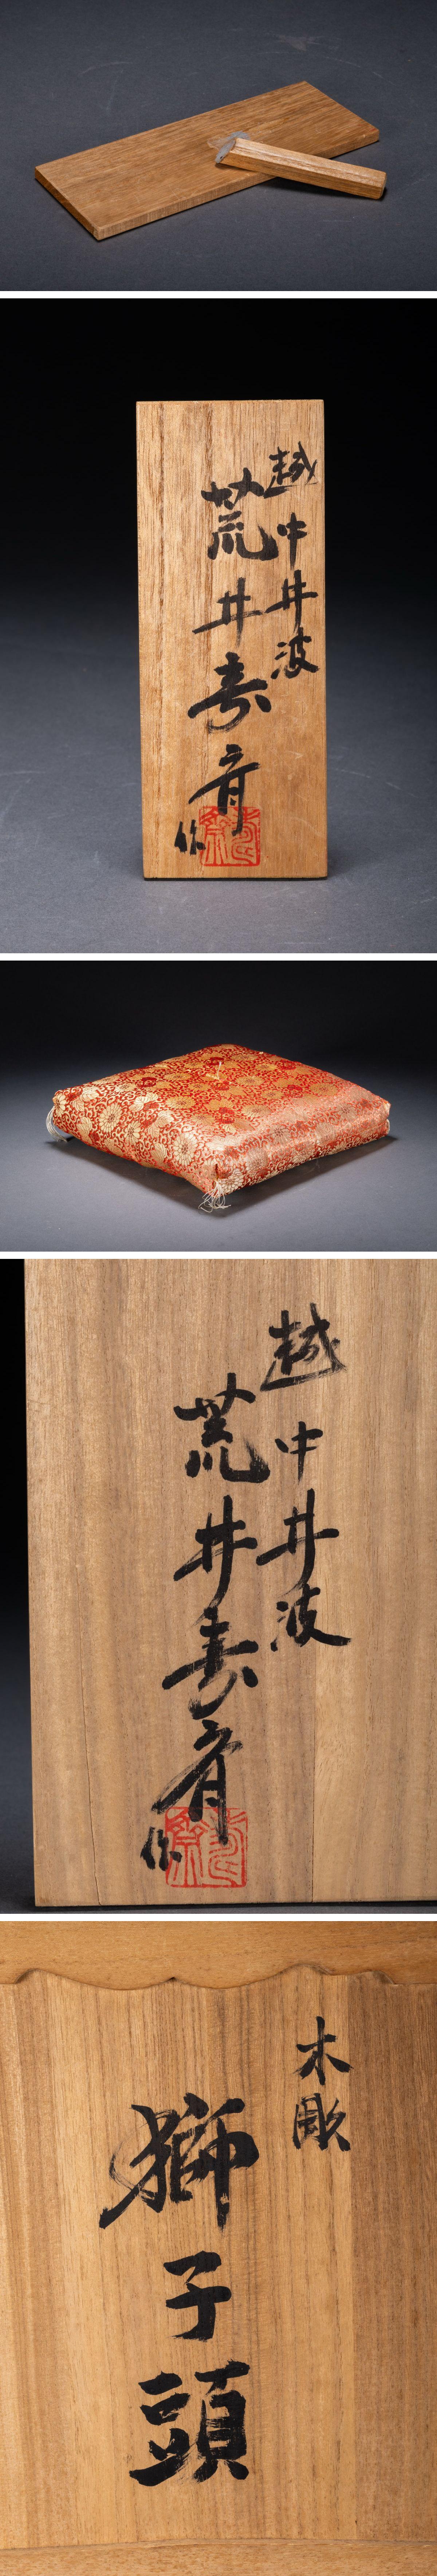 越中井波
荒井寿斎
作
越中井波
荒井寿斎
作
木彫
獅子頭